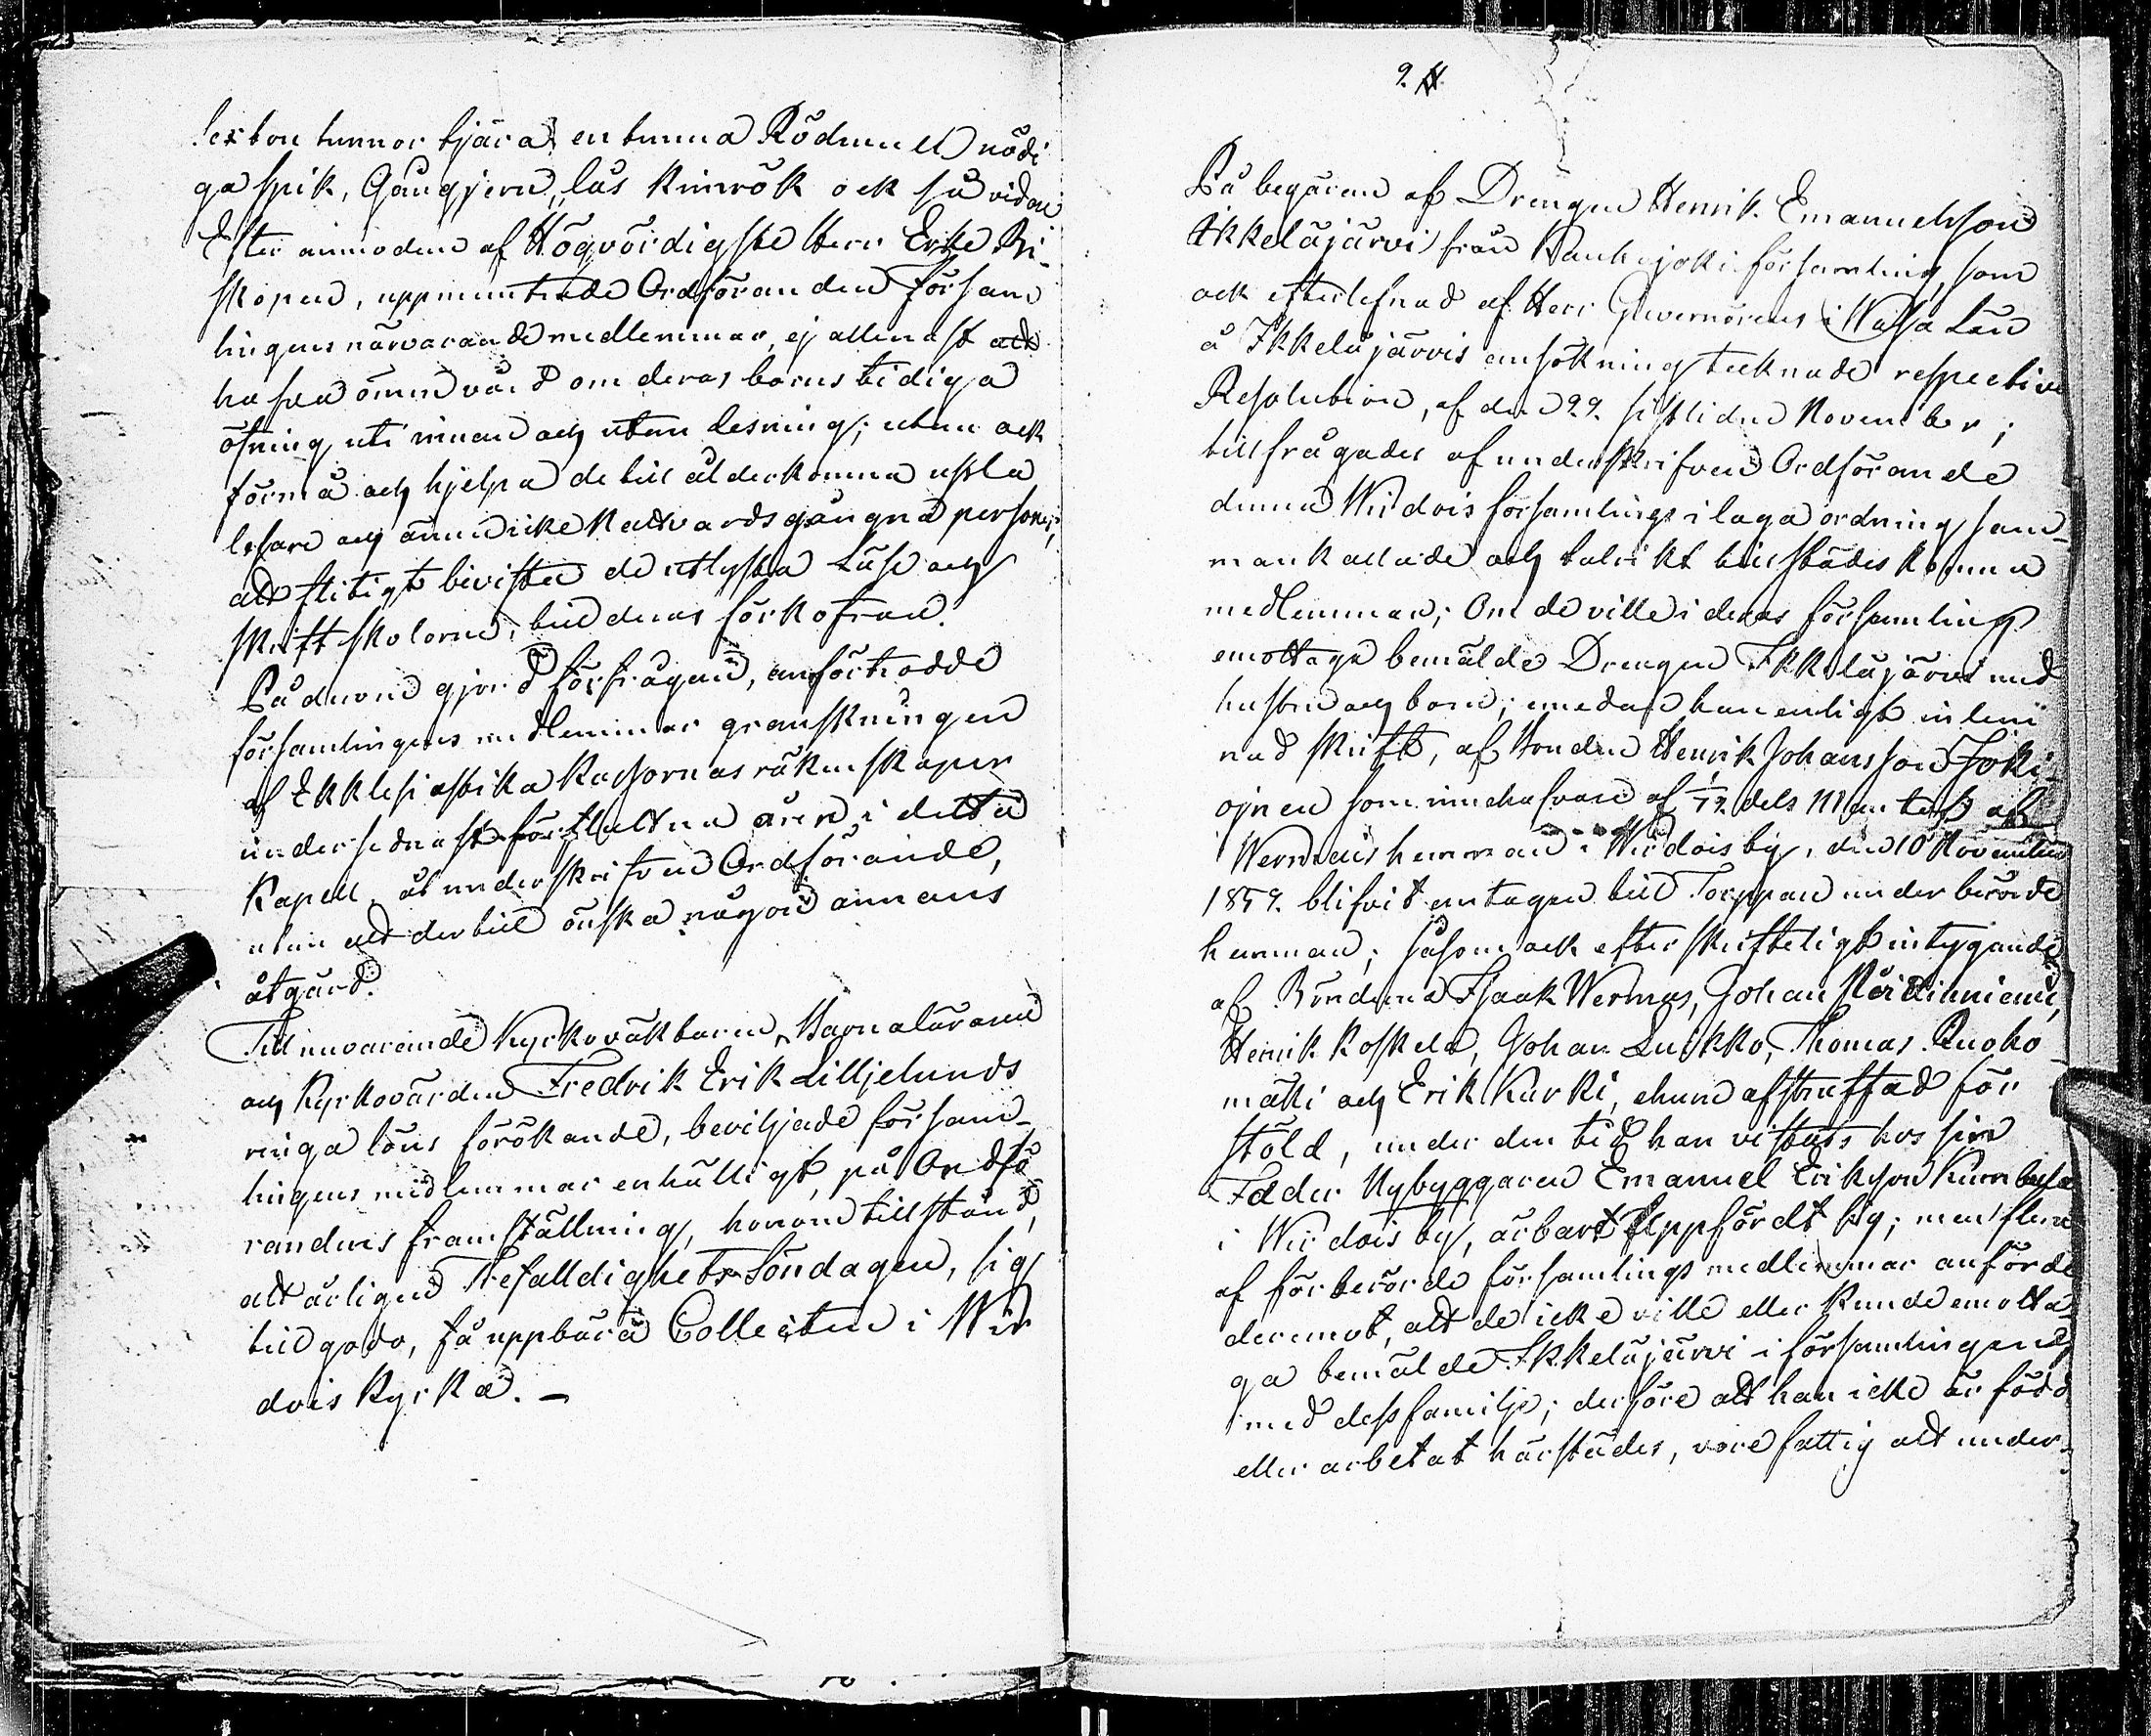 sexton tunnor tjära, en tunna Rödmull nödi
ga spik, Gångjern, lås kimrök ock så vidare
Efter anmodan af Högvördigste Herr Erke Bi-
skopen, uppmuntrade Ordföranden Försam
lingens närvarande medlemmar, ej allenast att
hafva öm vård om deras barns tidiga
öfning uti innan och utan lesning; utan ock
förmå och hjelpa de till ålderkomna usla
läsare och ännu icke Nattvardsgångna personer,
att flitigt bivista de utlysta Läse och
Skriftskolorne, till deras förkofran.
På derom gjord förfrågan, anförtrodde
församlingens medlemmar granskningen
af Ekklesiastika Kassornas räkenskaper
under sednast förflutna åren i detta
Kapell, åt underskrifven Ordförande,
utan att dertill önska någon annans
åtgärd.
Till nuvarande Kyrkovaktaren, Barnaläraren
och Kyrkovärden Fredrik Erik Lilljelunds
ringa löns förökande, beviljade försam-
lingens medlemmar enhälligt, på Ordfö
randens framställning, honom tillstånd,
att årligen Trefalldighets Söndagen, sig
till godo, få uppbära Collecten i Wir
dois Kyrka. -
2.
På begäran af Drengen Henrik Emanuelsson
Ikkeläjärvi från Kauhajoki församling, som
ock efterlefnad af Herr Guvernörens i Wasa Län
å Ikkeläjärvis ansökning tecknade respective
Resolution, af den 29. sistliden November;
tillfrågades af underskrifven Ordförande
denna Wirdois församlings i laga ordning sam-
mankallade och talrikt tillstädes komna
medlemmar; Om de ville i deras församling
emottaga bemälde Drengen Ikkeläjärvi med
hustru och barn; emedan han enligt inlem
nad skrift, af Bonden Henrik Johansson Joki-
ojnen som innehafvare af 1/12 dels Mantal af
Wermäis hemman i Wirdois by, den 10 November
1859. blifvit antagen till Torppare under berörde
hemman; såsom ock efter skriftligt intygande
af Bönderna Isaak Wermas, Johan Wärdinniemi,
Henrik Koskela, Johan Luikko, Thomas Ruoko
mäki och Erik Kurki, ehuru afstraffad för
stöld, under den tid han vistats hos sin
Fader Nybyggaren Emanuel Erikson
i Wirdois by, ärbart uppfördt sig; men flere
af förberörde församlings medlemmar anförde
deremot, att de icke ville eller kunde emotta-
ga bemälde Ikkeläjärvi i församlingen
med dess familje; derföre att han icke är född
eller arbetat härstädes, vore fattig att under-